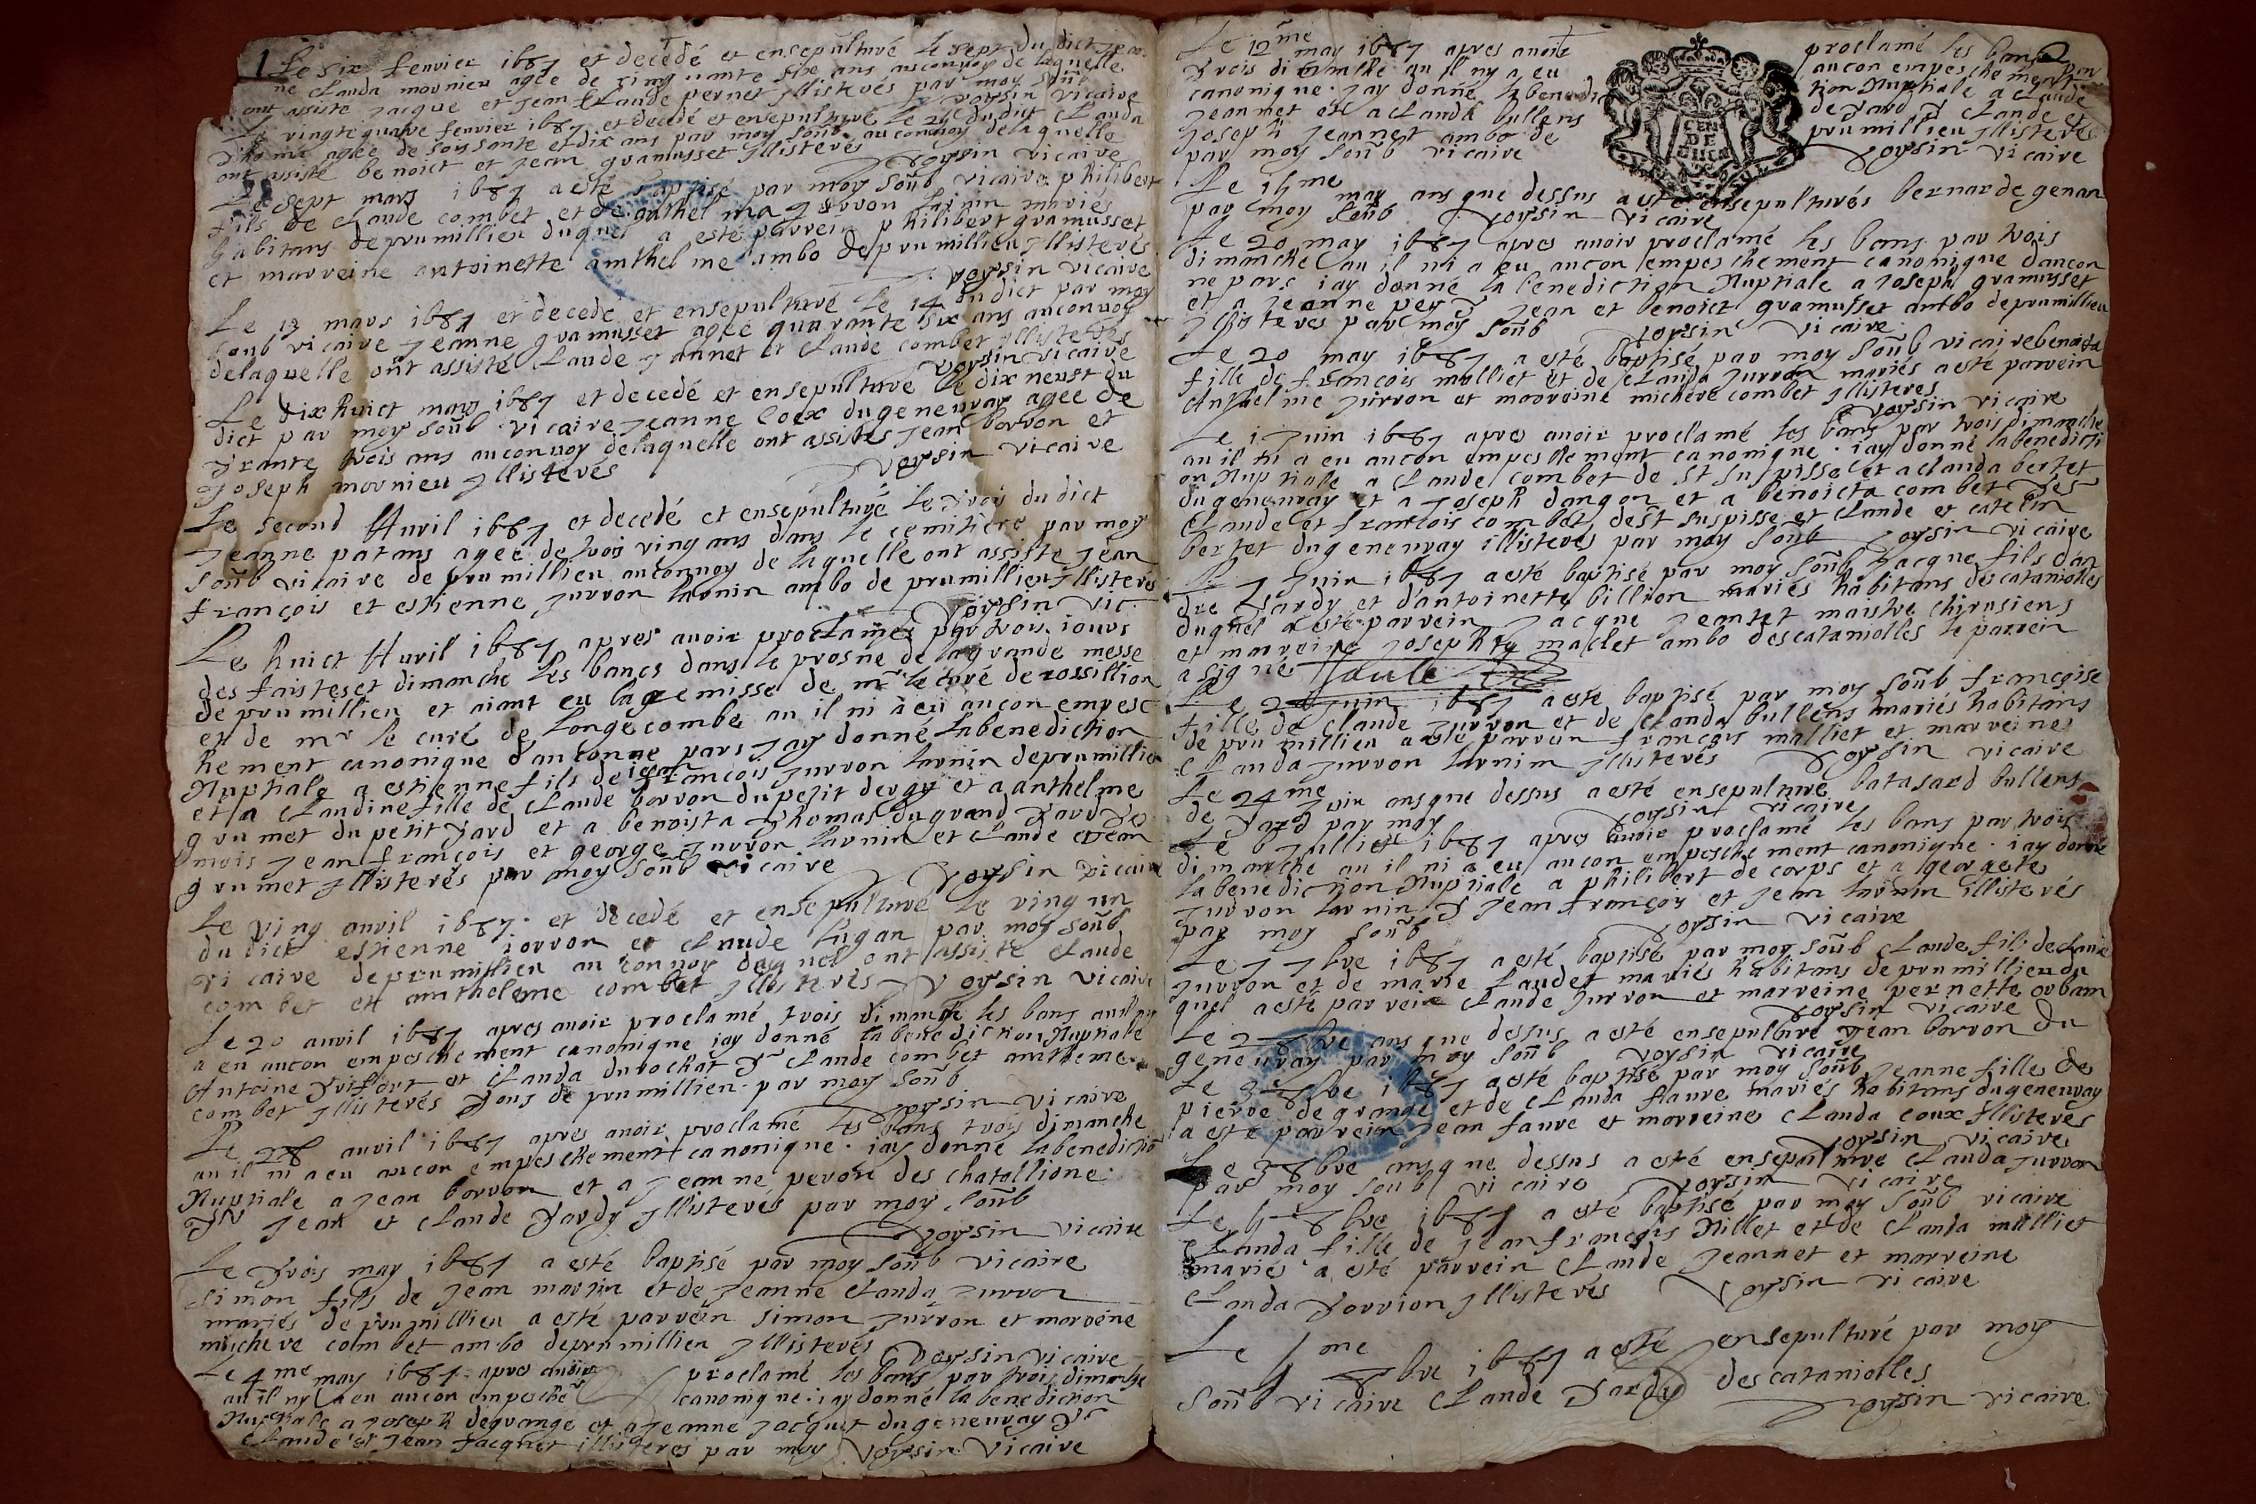 1 Le six feuvier 1687 et decedé et ensepulturé le sept du dict
ne Clauda mornieu agée de sinquante six ans auconvoy de laquelle
ont assisté jacque et jean Claude pernet jllisterés par moy soub
voysin vicaire
Le vingtequatre feuvier 1687 et decedé et ensepulturé le 25 dudict Clauda
agée de soissonte et dix ans par moy soub auconvoy delaquelle
ont assisté benoict et jean gramusset jllisterés voysin vicaire
Le sept mars 1687 a esté baptisé par moy soub vicaire philibert
fils de Claude combet et de anthelma jurron tarnin mariés
habitans deprumillieu duquel a esté parrein philibert gramusset
et marreine antoinette amthelme ambo de prumillieu jllisterés
voysin vicaire
Le 13 mars 1687 et decede et ensepulturé le 14 dudict par moy
soub vicaire jeanne gramusset agée quarante six ans auconvoy
delaquelle ont assisté Claude jannet et Claude combet jllisterés
voysin vicaire
Le dixhuict mars 1687 et decedé et ensepulturé le dix neuft du
dict par moy soub vicaire jeanne coex dugeneuray agée de
trante trois ans auconvoy delaquelle ont assistés jean borron et
joseph mornieu jllisterés voysin vicaire
Le second Auril 1687 et decedé et ensepulturé le trois du dict
jeanne patans agée de trois ving ans dans le cemitiere par moy
soub vicaire de prumillieu auconvoy de laquelle ont assisté jean
françois et estienne jurron tarnin ambo de prumillieu jllisterés
voysin vic.
Le huict Auril 1687 apres auoir proclamé par trois iours
des faistes et dimanche les bancs dans le prosne de la grande messe
de prumillieu et aiant eu la remisse de mr le curé de rossillion
et de mr le curé de Longecombe au il ni a eu aucon empesc
hement canonique d'auconne pars jay donné labenediction
Nuptiale a estienne fils de jean françois jurron tarnin deprumillieu
et a Claudine fille de Claude borron dupetit dergy et a anthelme
grumet du petit Yard et a benoista thomas du grand Yard
mois jean françois et george jurron tarnin et Claude et jean
grumet jllisterés par moy soub vicaire voysin vicaire
Le ving auril 1687 et decedé et ensepulturé le ving un
du dict estienne jorron et Claude lugan par moy soub
vicaire deprumillieu au convoy duquel ont assisté Claude
combet et amthelme combet jllisterés voysin vicaire
Le 20 auril 1687 apres auoir proclamé trois dimanche les bans auil ny
a eu aucon empeschement canonique jay donné la benediction Nuptiale
Antoine et Clauda durochat Claude combet amthelme
combet jllisterés tous de prumillieu par moy soub
voysin vicaire
Le 28 auril 1687 apres auoir proclamé les bans trois dimanche
au il ni a eu aucon empeschement canonique. iay donné labenedictio
Nuptiale a jean borron et a jeanne peron des chatollione
jean et Claude Yardy jllisterés par moy soub
voysin vicaire
Le trois may 1687 a esté baptisé par moy soub vicaire
simon fils de jean martin et de jeanne Clauda jurron
mariés de prumillieu a esté parrein simon jurron et mareine
michere combet ambo deprumillieu jllisterés voysin vicaire
Le 4me may 1687 apres auoir proclamé les bans par trois dimanche
au il ny a eu aucon empesche canonique. iay donné la benediction
Nuptiale a joseph degrange et a jeanne jacquet du geneuray
Claude et jean jacquet jllisteres par moy voysin vicaire
Le 12me may 1687 apres auoir proclamé les bans
trois dimanche au il ny a eu aucon empeschement
canonique. jay donné la benedic tion Nuptiale a Claude
jeannet et a Clauda bullens de Yard Claude et
joseph jeannet ambo de prumillieu jllisterés
par moy soub vicaire voysin vicaire
GEN DE
Le 15me may ans que dessus a esté ensepulturés bernarde genan
par moy soub voysin vicaire
Le 20 may 1687 apres auoir proclamé les bans par trois
dimanche au il ni a eu aucon empeschement canonique daucon
ne pars iay donné la benediction Nuptiale a joseph gramusset
et a jeanne jean et benoict gramusset ambo deprumillieu
jllisteres par moy soub voysin vicaire
Le 20 may 1687 a esté baptisé par moy soub vicaire benoicta
fille de françois malliet et de Clauda jurron mariés a esté parrein
anthelme jurron et marreine michere combet jllisteres
voysin vicaire
Le 1 juin 1687 apres auoir proclamé les bans par trois dimanche
au il ni a eu aucon empeschement canonique. iay donné la benedicti
on Nuptiale a Claude combet de St suspisse et a clauda bertet
du geneuray et a joseph dangon et a benoicta combet
Claude et françois combet de st suspisse et Claude et catelin
bertet dugeneuray jllisteres par moy soub voysin vicaire
Le 7 juin 1687 a esté baptisé par moy soub jacque fils d'an
dre Yardy et d'antoinette billion mariés habitans descataniolles
duquel a esté parrein jacque jeantet maistre chirusiens
et marreine josephte maclet ambo descataniolles le parrein
a signé
Le 20 juin 1687 a esté baptisé par moy soub françoise
fille de Claude jurron et de Clauda bullens mariés habitans
de prumillieu a esté parrein françois malliet et marreine
Clauda jurron tarnim jllisterés voysin vicaire
Le 24me juin ansque dessus a esté ensepulturé batasard bullens
de Yard par moy voysin vicaire
Le 6 julliet 1687 apres auoir proclamé les bans par trois
dimanche au il ni a eu aucon empeschement canonique. iay donné
labenediction Nuptiale a philibert de corps et a georgete
jurron tarnin jean françoy et jean tarnin illisterés
par moy soub voysin vicaire
Le 7 7bre 1687 a esté baptisé par moy soub Claude fils de Claude
jurron et de marie Laudet mariés habitans de prumillieu du
quel a esté parrein Claude jurron et marreine pernette orban
voysin vicaire
Le 2 7bre ans que dessus a esté ensepulturé jean borron du
geneuray par moy soub voysin vicaire
Le 3 7bre 1687 a esté baptisé par moy soub jeanne fille de
pierre de grange et de Clauda flaure mariés habitans du geneuray
a esté parrein jean faure et marreine Clauda coux jllisterés
voysin vicaire
Le 3 8bre ansque dessus a esté ensepulturé Clauda jurron
par moy soub vicaire voysin vicaire
Le 5 8bre 1687 a esté baptisé par moy soub vicaire
Clauda fille de jeanfrançois Nillet et de Clauda malliet
mariés a esté parrein Claude jeannet et marreine
Clauda Yorrion jllisterés voysin vicaire
Le 1me 9bre 1687 a esté ensepulturé par moy
soub vicaire Claude Yardy descataniolles
voysin vicaire